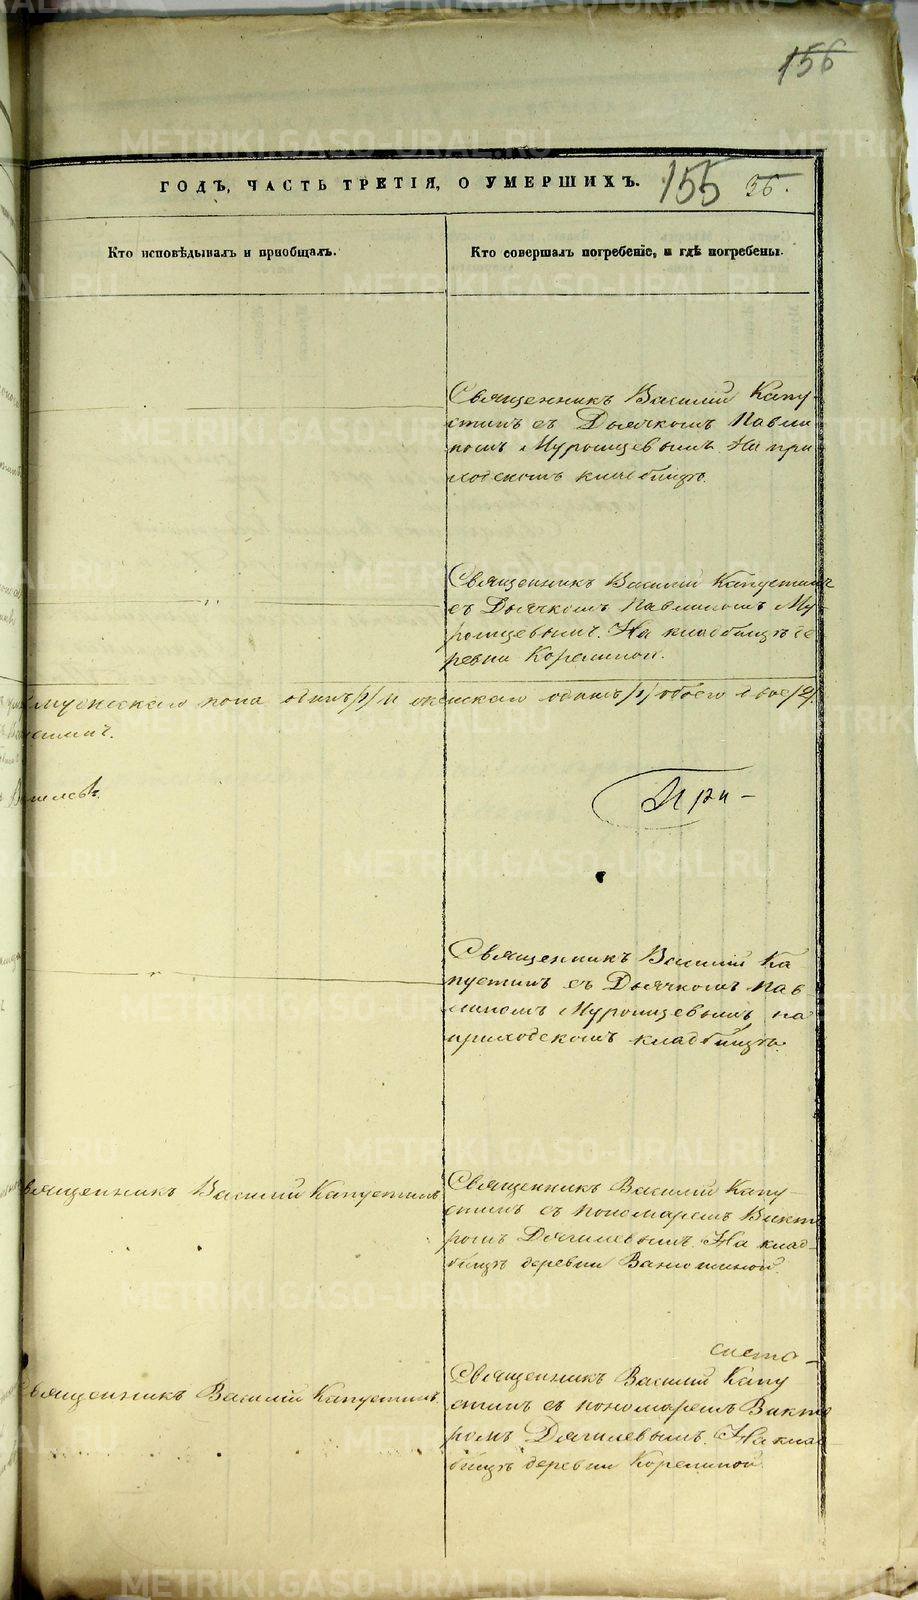 156
ГОДЪ, ЧАСТЬ ТРЕТІЯ, О УМЕРШИХЪ. 155 36.
Кто исповѣдывалъ и приобщалъ.
Кто совершалъ погребеніе, и гдѣ погребены.
Священникъ Василій Капу-
стинъ съ Дьячкомъ Павли
номъ Муромцевымъ. На при
ходскомъ кладбищѣ.
Священникъ Василій Капустинъ
съ Дьячкомъ Павлиномъ Му-
ромцевымъ. На кладбищѣ де
ревни Корелиной.
мужескаго пола одинъ /1/ и женскаго одинъ /1/ обоего двое /2/.
Священникъ Василій Ка
пустинъ съ Дьячкомъ Пав-
линомъ Муромцевымъ на
приходскомъ кладбищѣ.
Священникъ Василій Капустинъ
Священникъ Василій Капу-
стинъ съ пономаремъ Викто
ромъ Дягилевымъ. На клад-
бищѣ деревни
Священникъ Василій Капустинъ.
Священникъ Василій Капу
стинъ съ пономаремъ Викто
ромъ Дягилевымъ. На клад
бищѣ деревни Корелиной
METRIKI.GASO-URAL.RU